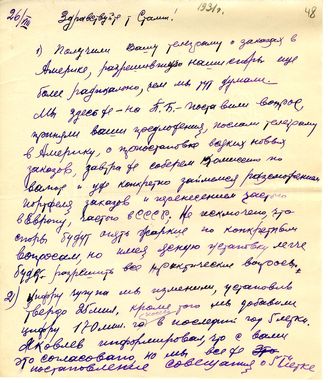 26/VIII 1931г. 48
Здравствуйте т. Сталин!
1) Получили Вашу телеграмму о заказах в
Америке, разрешившую наши споры еще
более радикально, чем мы тут думали.
Мы здесь же – на П.Б. – поставили вопрос,
приняли ваши предложения, послали телеграмму
в Америку, о приостановке всяких новых
заказов, завтра же соберем комиссию по
валюте и уже конкретно займемся рассмотрением
портфеля заказов и перенесением частью
в Европу, частью в СССР. Не исключено, что
споры будут опять жаркие по конкретным
вопросам, но имея ясную установку легче
будет разрешить все практические вопросы.
2) Цифру чугуна мы изменили, установив
твердо 25 мил., кроме того мы добавили
цифру 170 мил. го в последний год Пятилетки.
Яковлев информировал, что с вами
это согласовано, но мы все же
постановление совещания о